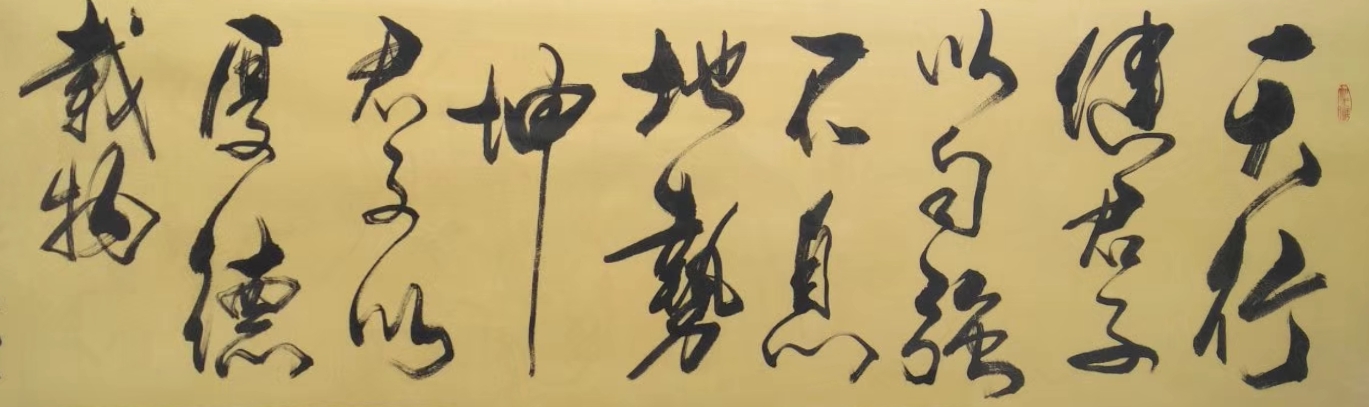 天行
健君子
以自強
不息
地勢
坤
君子以
厚德
載物